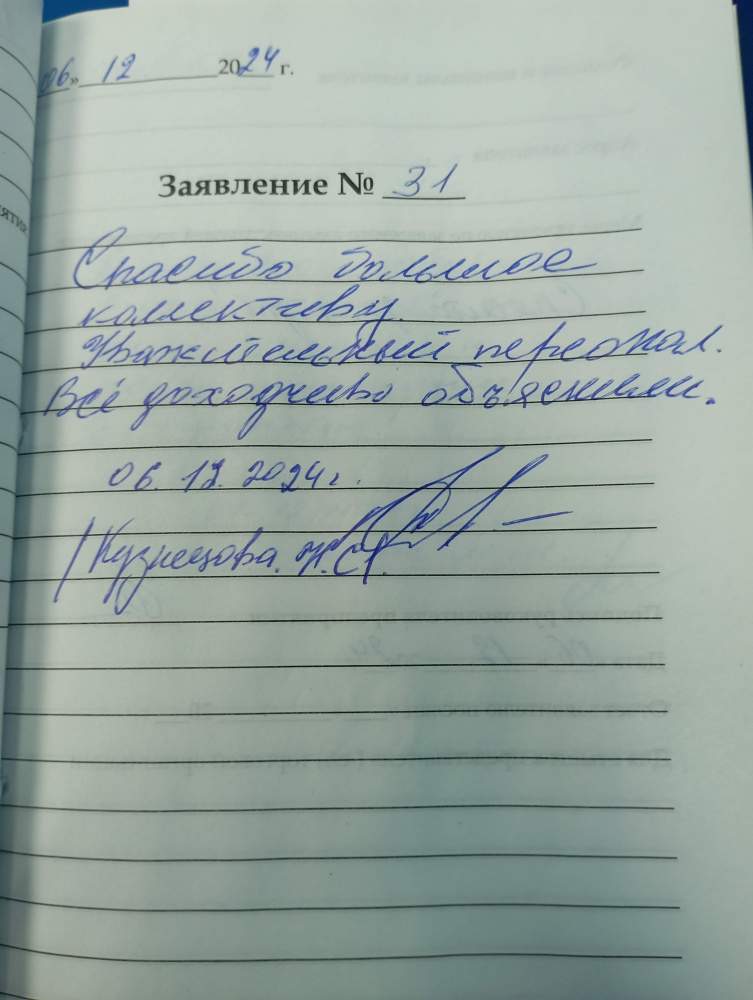 06» 12 2024 г.
Заявление № 31
Спасибо большое
коллективу.
Уважительный персонал.
Всё доходчиво объяснили.
06.12.2024г.
/Кузнецова.